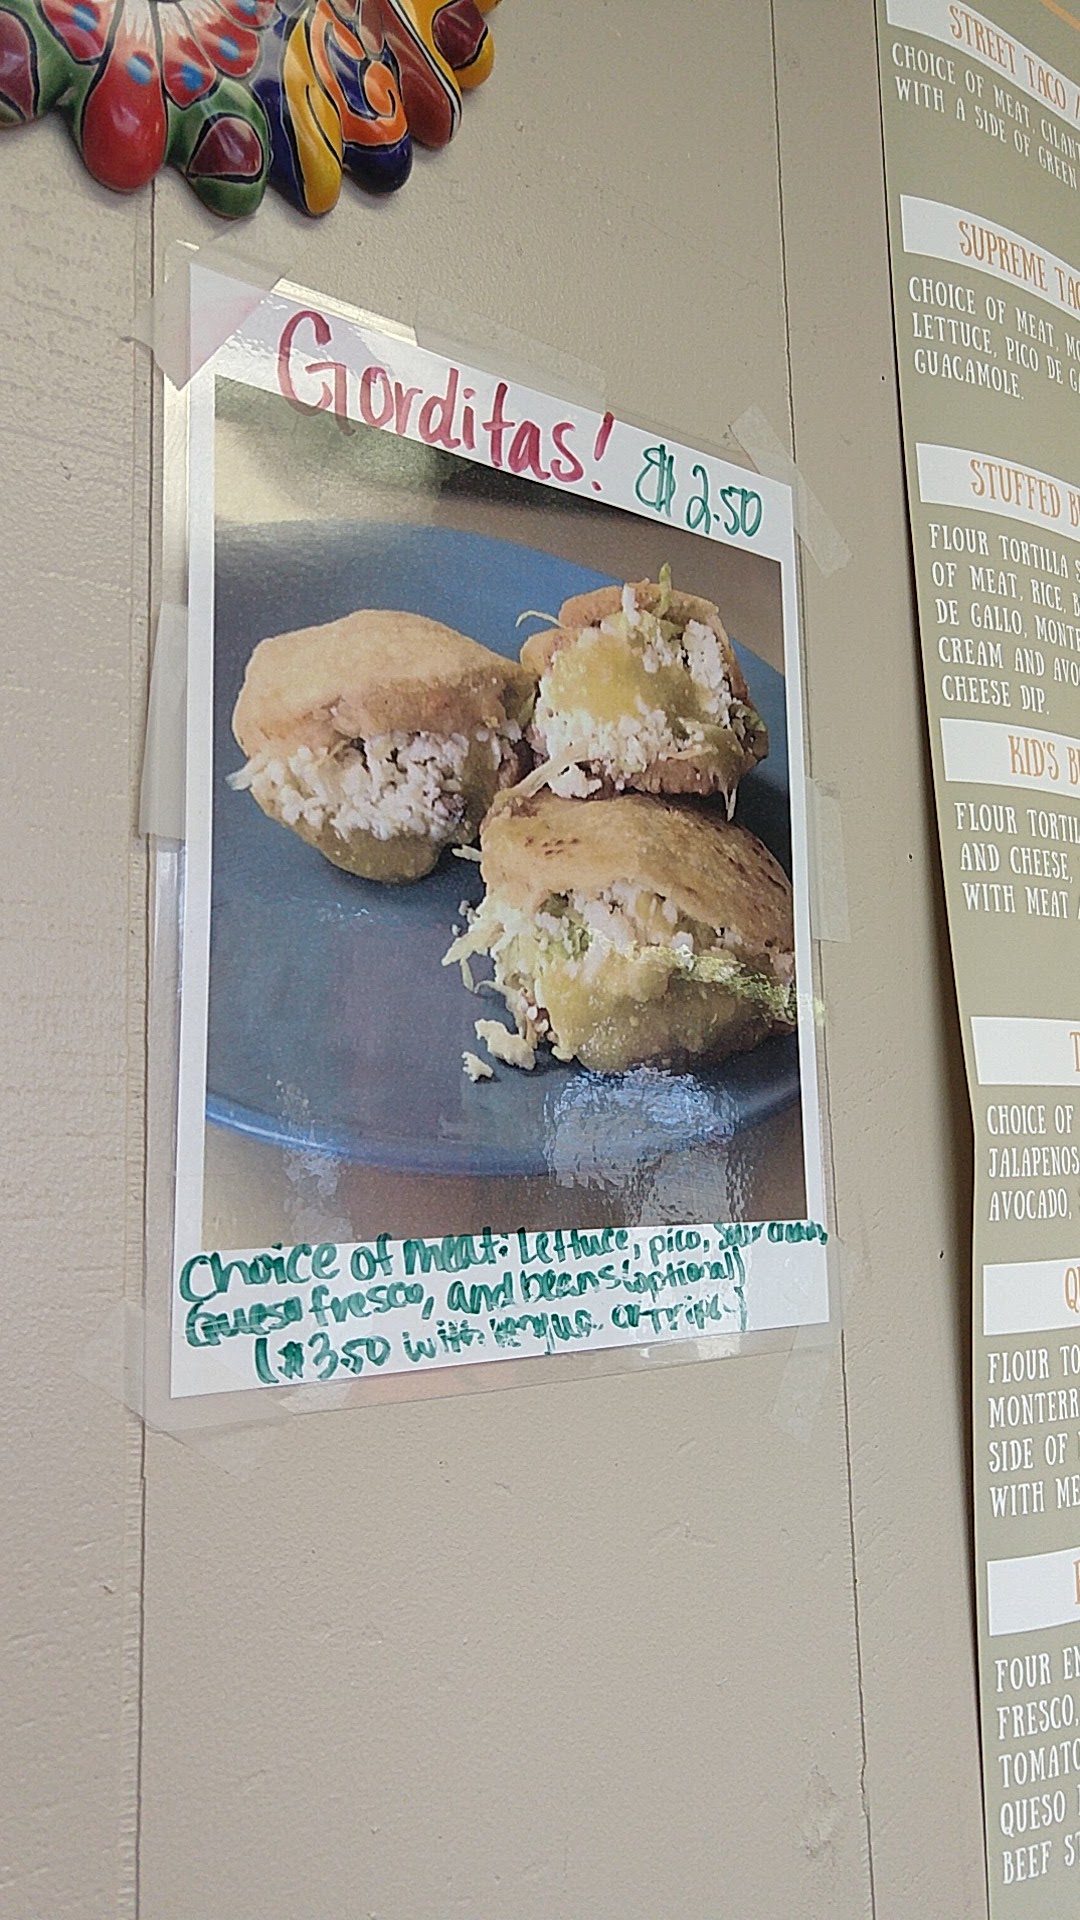 Gorditas! $2.50
Choice of meat: Lettuce, pico, sour cream,
Queso fresco, and beans (optional)
($3.50 with lengua or tripa)
STREET TACO
CHOICE OF MEAT, CILANT
WITH A SIDE OF GREEN
SUPREME TAC
CHOICE OF MEAT, MO
LETTUCE, PICO DE GA
GUACAMOLE.
STUFFED B
FLOUR TORTILLA S
OF MEAT, RICE, B
DE GALLO, MONTE
CREAM AND AVO
CHEESE DIP.
KID'S B
FLOUR TORTIL
AND CHEESE,
WITH MEAT
CHOICE OF
JALAPENOS
AVOCADO,
Q
FLOUR TO
MONTERR
SIDE OF
WITH ME
FOUR EN
FRESCO,
TOMATO
QUESO
BEEF ST